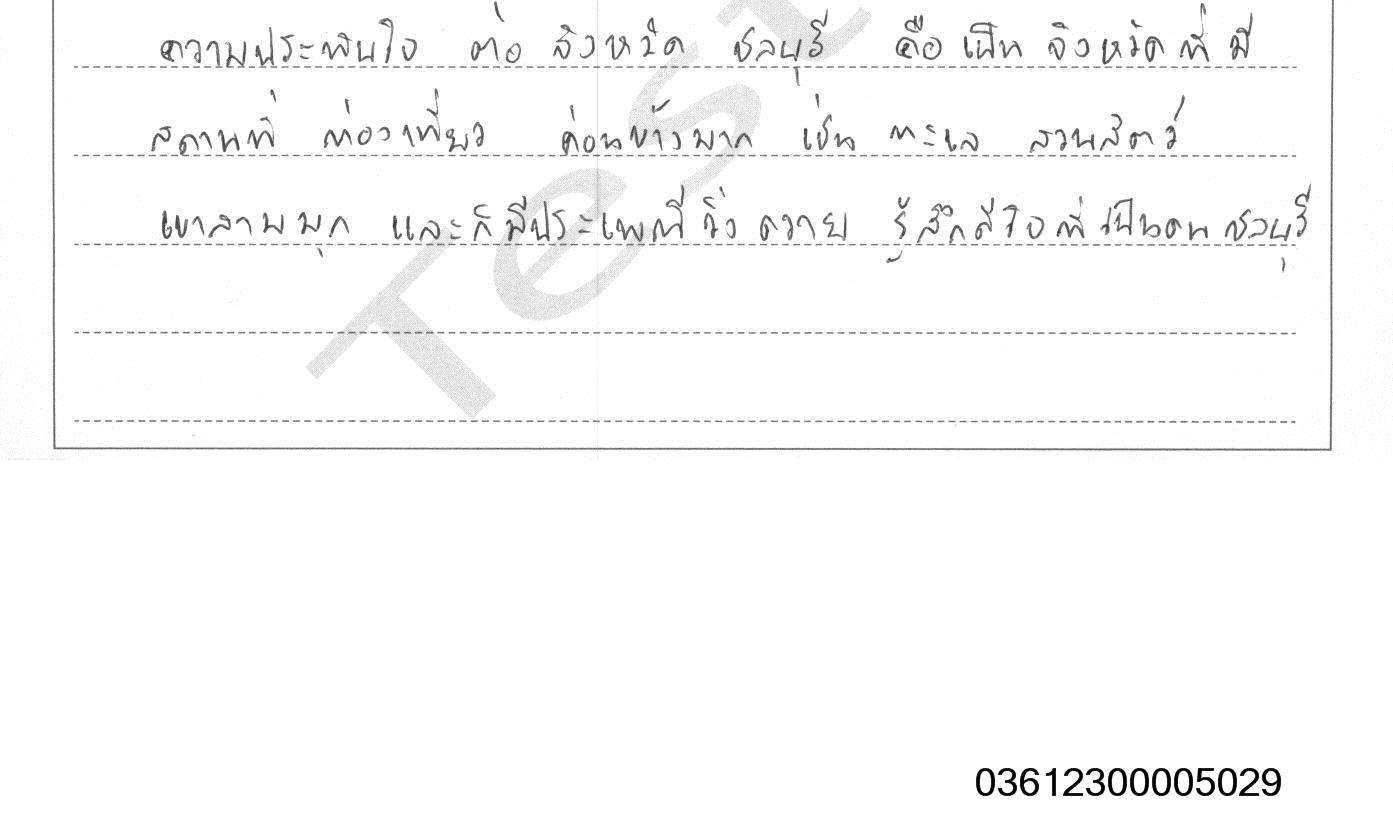 ความประทับใจ ต่อ จังหวัด ชลบุรี คือ เป็น จังหวัด ที่ มี
สถานที่ ท่องเที่ยว ค่อนข้างมาก เช่น ทะเล สวนสัตว์
เขาสามมุก และก็มีประเพณีวิ่ง ควาย รู้สึกดีใจที่เป็นคนชลบุรี
Test
03612300005029